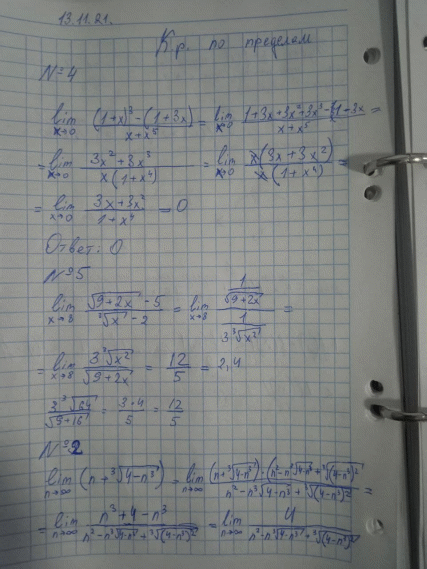 13.11.21.
К.р. по пределам
№4
lim x→0 ((1+x)³ - (1+3x))/(x+x⁵) = lim x→0 (1+3x+3x²+3x³-1-3x)/(x+x⁵) =
= lim x→0 (3x²+3x³)/(x(1+x⁴)) = lim x→0 (x(3x+3x²))/(x(1+x⁴)) =
= lim x→0 (3x+3x²)/(1+x⁴) = 0
Ответ: 0
№5
lim x→8 (√(9+2x) - 5)/(³√x - 2) = lim x→8 (1/√(9+2x))/(1/(3³√x²)) =
= lim x→8 (3³√x²)/√(9+2x) = 12/5 = 2,4
(3³√64)/√(9+16) = (3·4)/5 = 12/5
№2
lim n→∞ (n+³√(4-n³)) = lim n→∞ ((n+³√(4-n³))·(n²-n³√(4-n³)+³√(4-n³)²))/(n²-n³√(4-n³)+³√(4-n³)²) =
= lim n→∞ (n³+4-n³)/(n²-n³√(4-n³)+³√(4-n³)²) = lim n→∞ 4/(n²-n³√(4-n³)+³√(4-n³)²)